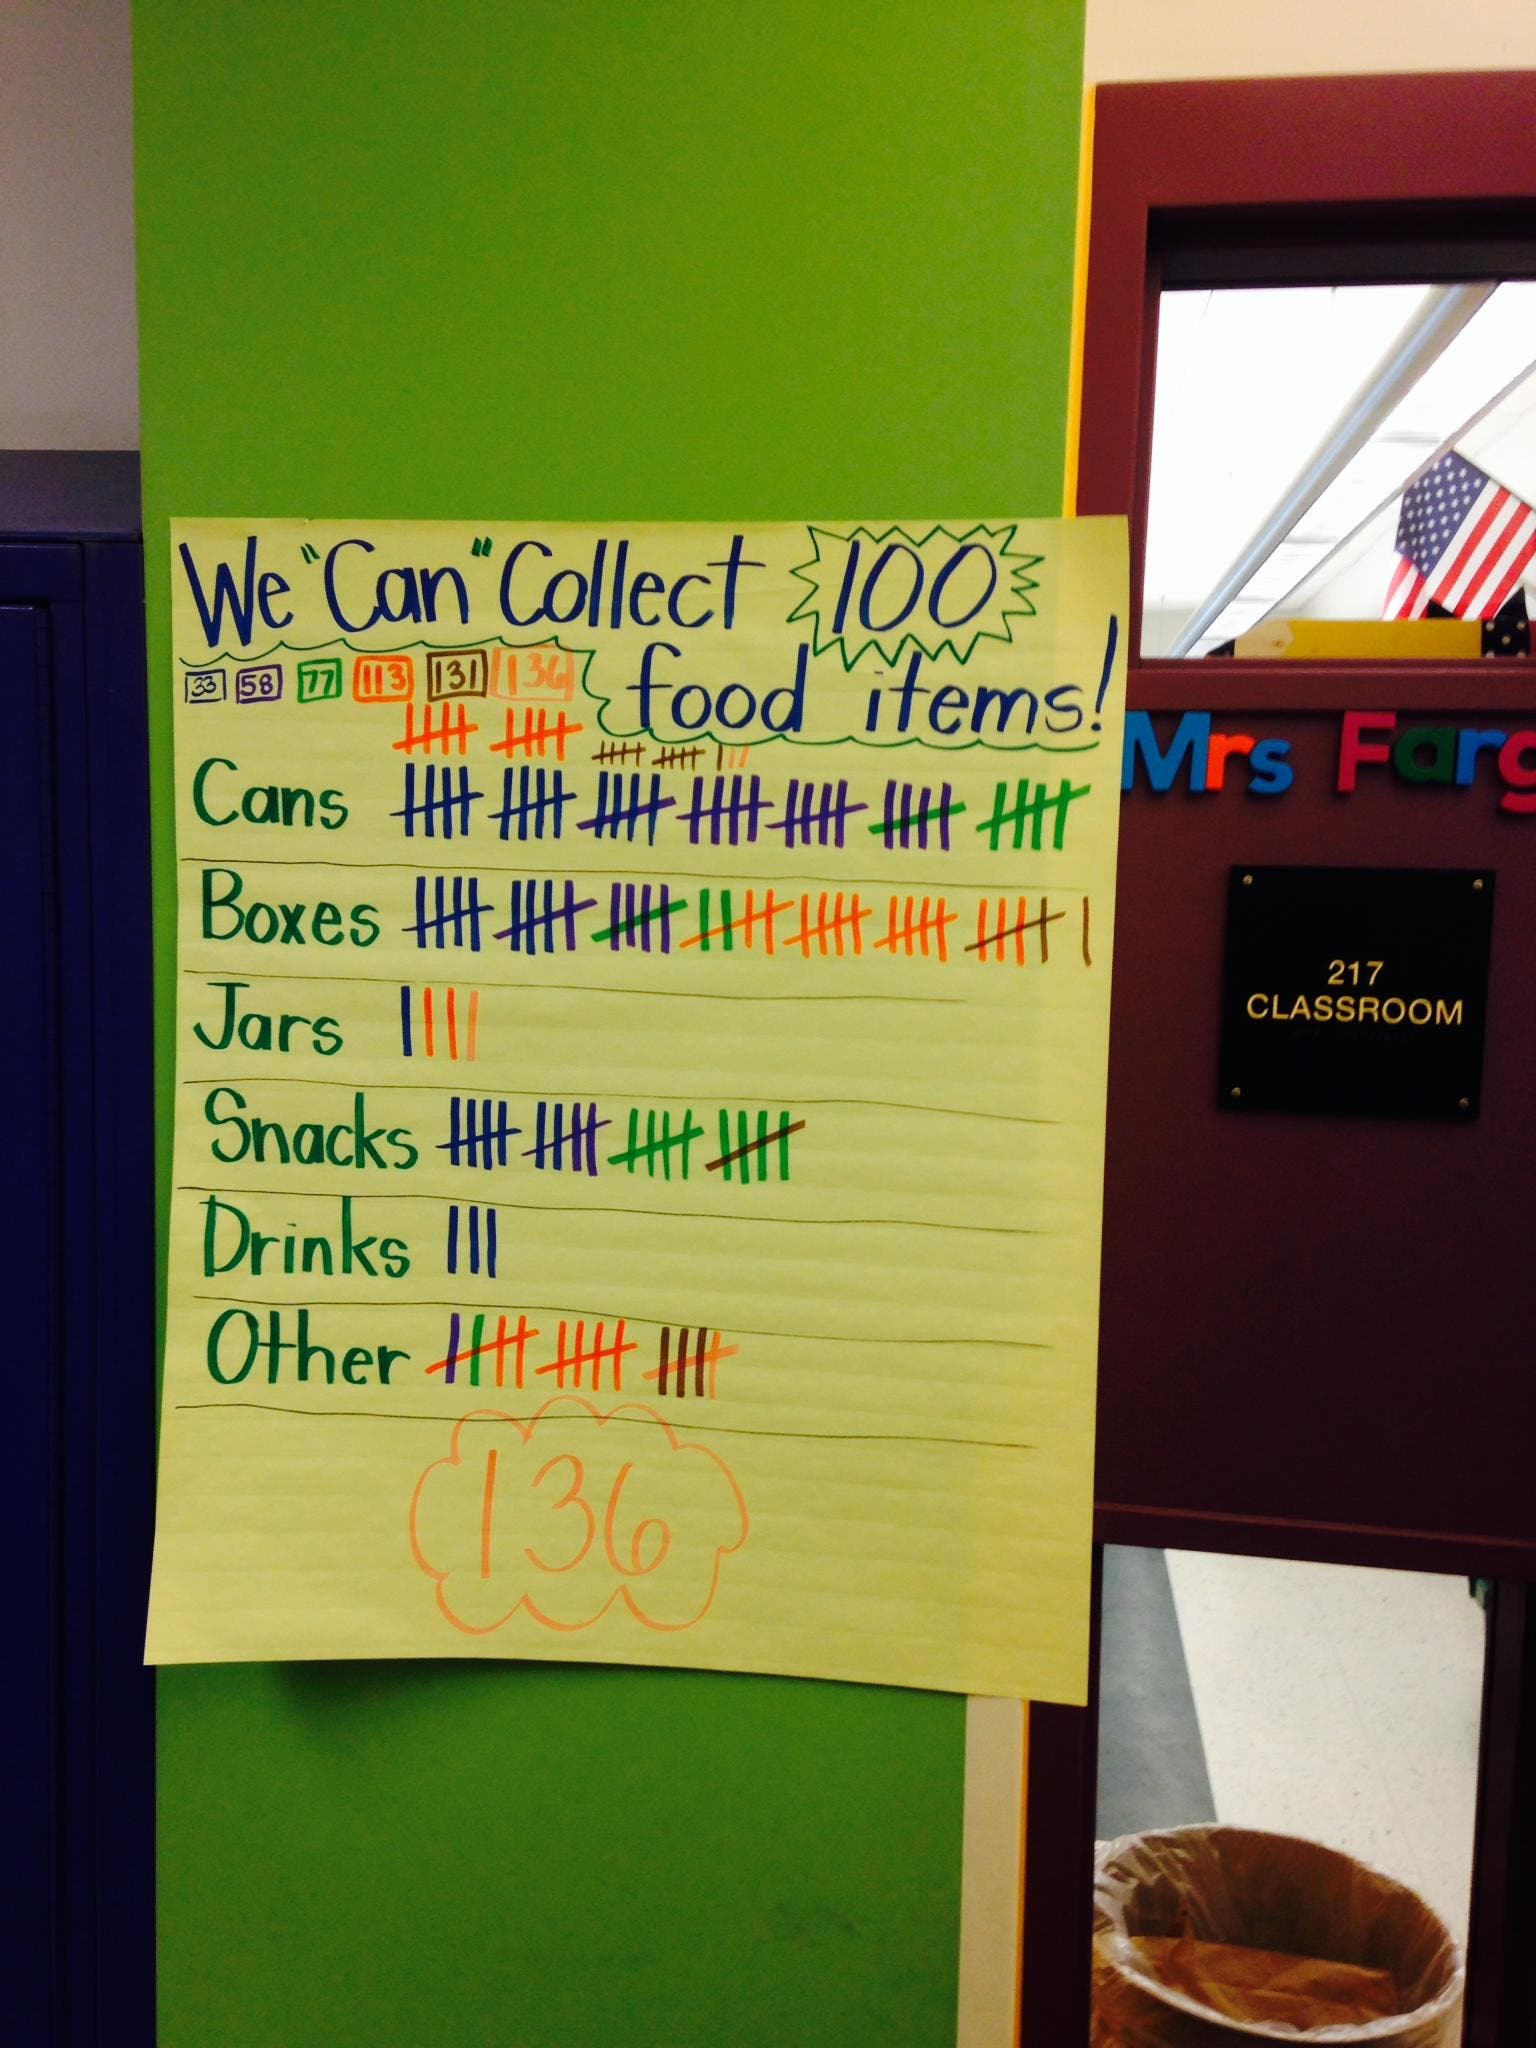 We "Can" Collect 100
food items!
33 58 77 113 131 136
Cans
Boxes
Jars
Snacks
Drinks
Other
136
Mrs Farg
217
CLASSROOM